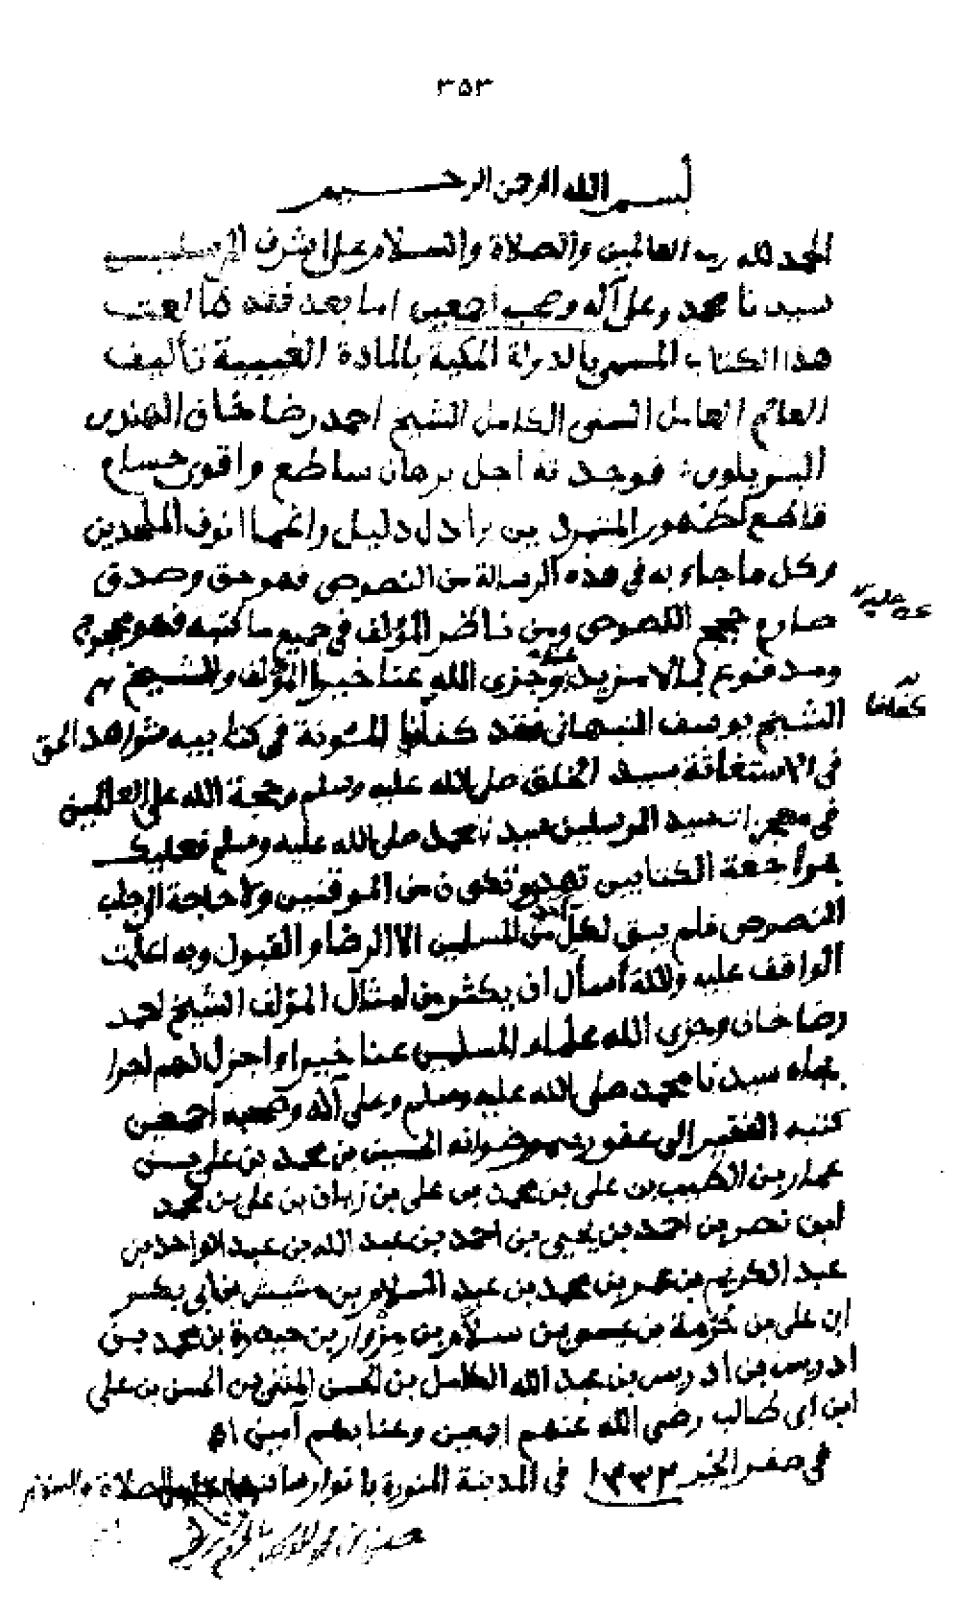 ٣٥٣
بسم الله الرحمن الرحيم
الحمد لله رب العالمين والصلاة والسلام على اشرف المرسلين
سيدنا محمد وعلى آله وصحبه اجمعين اما بعد فقد طالعت
هذا الكتاب المسمى بالدولة المكية بالمادة الغيبية تأليف
العالم العامل السنى الكامل الشيخ احمد رضا خان الهندى
البريلوى فوجدته اجل برهان ساطع واقوى حسام
قاطع لظهور المتمردين بادل دليل وانوف الملحدين
وكل ما جاء به فى هذه الرسالة من النصوص فهو حق وصدق
صارم حجج اللصوص ومن ناظر المؤلف فى جميع ما كتبه فهو محجوج
عليه
ومدفوع بالا مزيد وجزى الله عنا خيرا المؤلف والشيخ
الشيخ يوسف النبهانى فقد كفانا المئونة فى كتابيه شواهد الحق
كفانا
فى الاستغاثة بسيد الخلق صلى الله عليه وسلم وحجة الله على العالمين
فى معجزات سيد المرسلين سيدنا محمد صلى الله عليه وسلم فعليك
بمراجعة الكتابين تهدى وتكون من الموقنين ولا حاجة الى جلب
النصوص فلم يبق لكل احد من المسلمين الا الرضا والقبول وبه اعلمت
الواقف عليه والله أسأل ان يكثر من امثال المؤلف الشيخ احمد
رضا خان وجزى الله علماء المسلمين عنا خيرا واجزل لهم اجرا
بجاه سيدنا محمد صلى الله عليه وسلم وعلى آله وصحبه اجمعين
كتبه الفقير الى عفو ربه ورضوانه الحسين بن محمد بن على بن
عمار بن الطيب بن على بن محمد بن على بن زيان بن على بن محمد
ابن نصر بن احمد بن يحيى بن احمد بن عبد الله بن عبد الواحد بن
عبد الكريم بن عمر بن محمد بن عبد السلام بن مشيش بن أبى بكر
ابن على بن حرمة بن عيسى بن سلام بن مزوار بن حيدرة بن محمد بن
ادريس بن ادريس بن عبد الله الكامل بن الحسن المثنى بن الحسن بن على
ابن ابى طالب رضى الله عنهم اجمعين وعنا بهم آمين اه
فى صفر الخير ١٣٣٢ فى المدينة المنورة بانوار ساكنها الصلاة والسلام